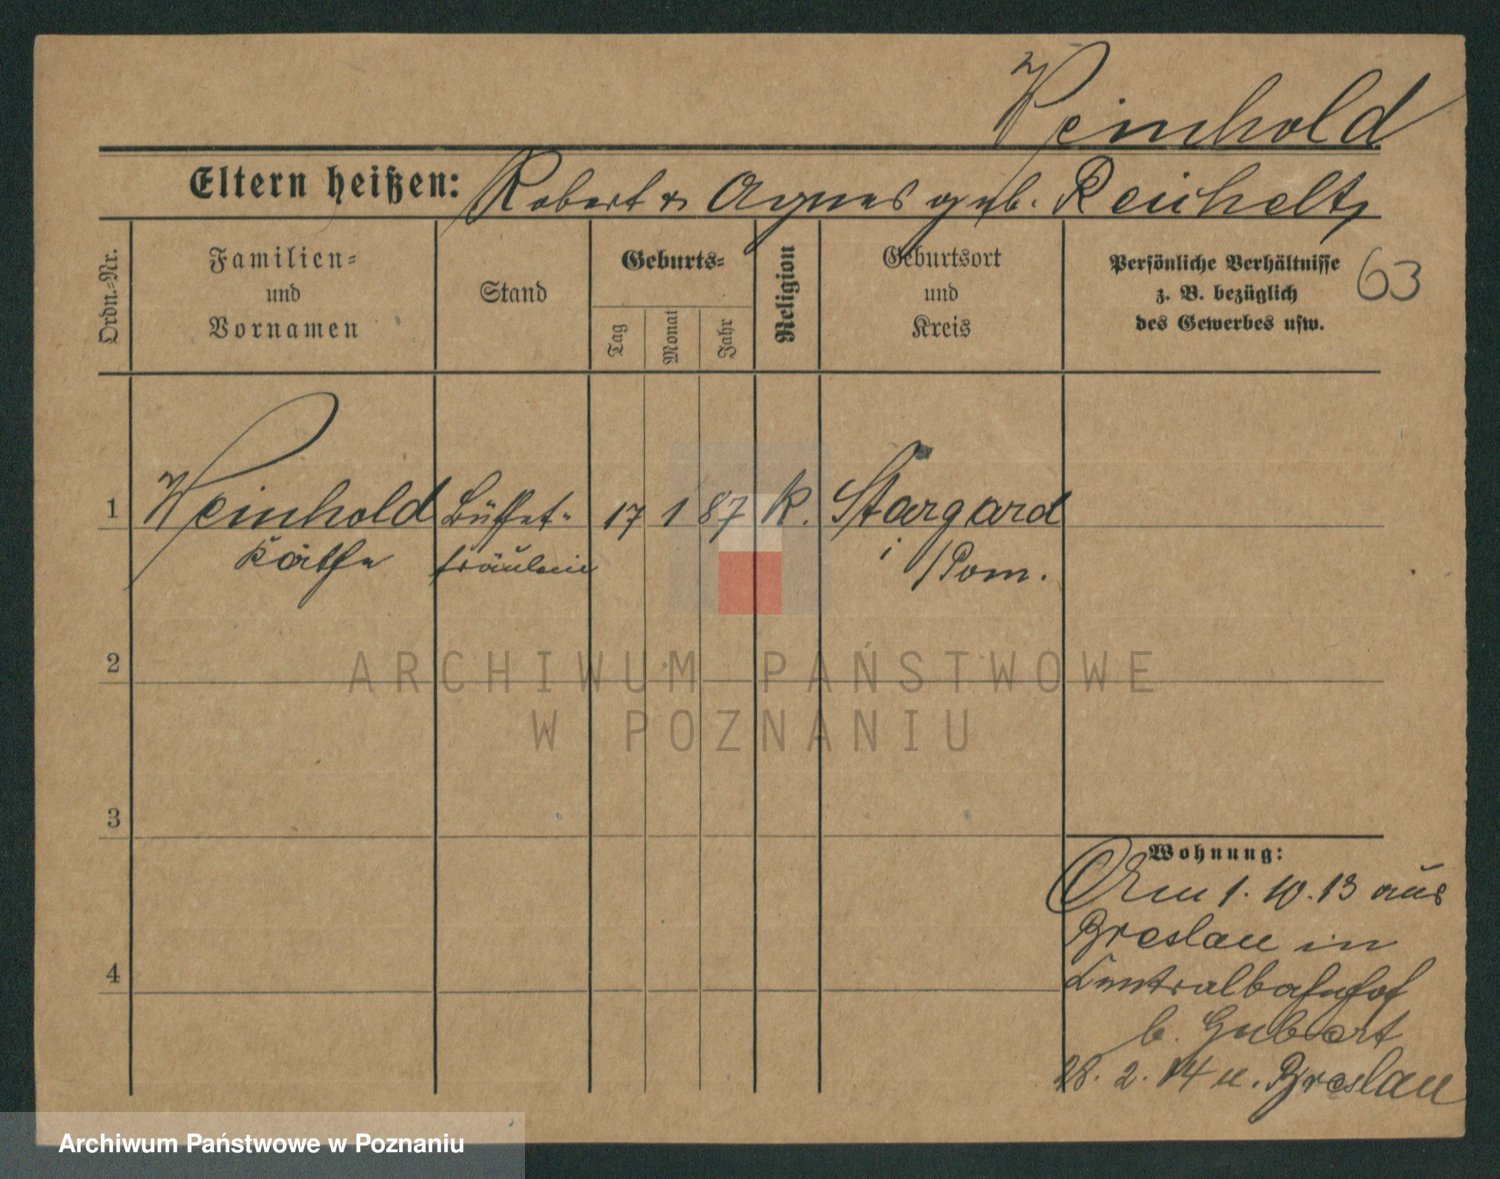 Weinhold
Eltern heißen: Robert u. Agnes geb. Reichelt,
Ordn.-Nr.
Familien-
und
Vornamen
Stand
Geburts-
Tag
Monat
Jahr
Religion
Geburtsort
und
Kreis
Persönliche Verhältnisse
z. B. bezüglich
des Gewerbes usw.
63
1 Weinhold Büffet- 17 1 87 K. Stargard
Käthe fräulein i/Pom.
2
ARCHIWUM PAŃSTWOWE
W POZNANIU
3
Wohnung:
Am 1.10.13 aus
Breslau in
4
Centralbahnhof
b.
28.2.14 n. Breslau
Archiwum Państwowe w Poznaniu